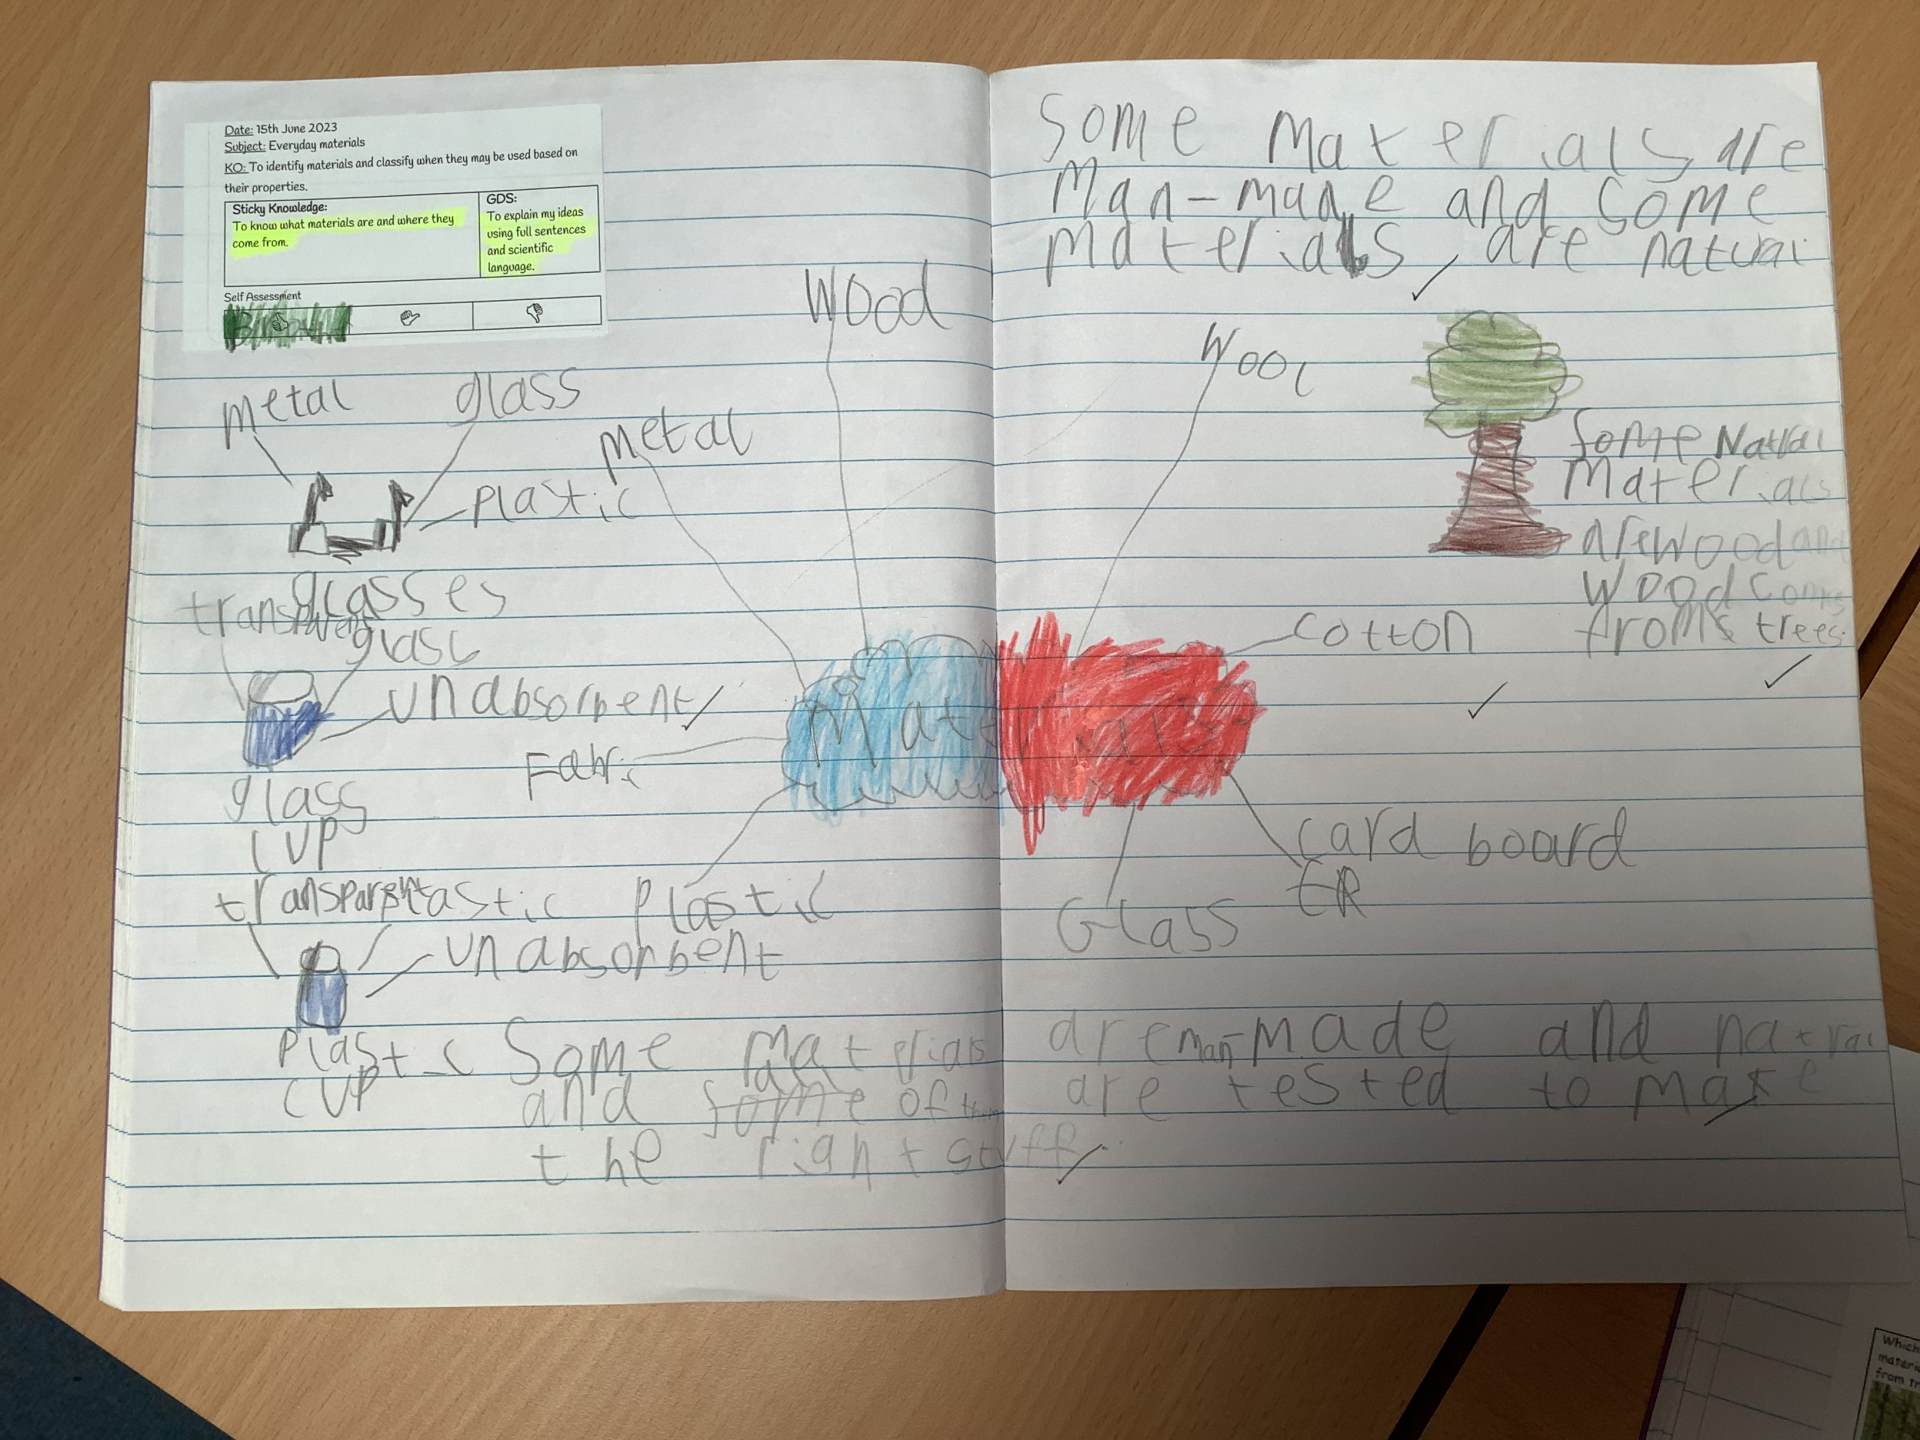 Date: 15th June 2023
Subject: Everyday materials
KO: To identify materials and classify when they may be used based on
their properties.
Sticky Knowledge:
To know what materials are and where they
come from.
GDS:
To explain my ideas
using full sentences
and scientific
language.
Self Assessment
metal
glass
plastic
glasses
transparent
glass
unabsorbent
glass
cup
transparent
plastic
unabsorbent
plastic
cup
metal
wood
Fabric
plastic
Materials
Some materials are
man-made and some
materials are natural
wool
cotton
card board
Glass
Some Natral
materials
are wood and
wood coms
from trees.
Some materials are man-made and natral
and some of them are tested to make
the right stuff.
Which
materi
from tr